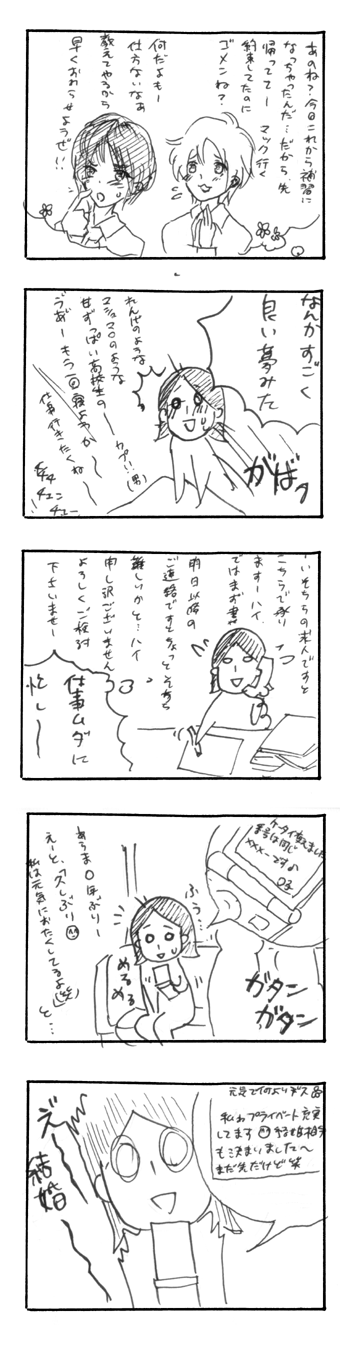 あのね?今日これから補習に
なっちゃったんだ…だから先
帰ってて! マック行く
約束してたのに
ゴメンね?
何だよもー
仕方ないなあ
教えてやるから
早くおわらせようぜ!!
なんかすごく
良い夢みた
がばっ
れんげのような
マシュマロのような
甘ずっぱい高校生の
カプ!!(男)
うあ"ーもう一回寝ようか〜
仕事行きたくね〜
チュン
チュー
はいそちらの求人ですと
こちらで承り
ますーハイ
ではまず書
明日以降の
ご連絡ですとちょっとそちら
難しいかと…ハイ
申し訳ございません
よろしくご検討
下さいませー
仕事ムダに
忙し〜
ケータイ変えました
番号は同じ
xxx-ですね
ふぅ…
ガタン
ガタン
あらま〇年ぶりー
えーと、「久しぶり
私は元気におたくしてるよ(笑)
と…
めるめる
元気で何よりデス
私もプライベート充実
してます 結婚相手
も決まりました〜
まだ先だけど笑
え"
結婚